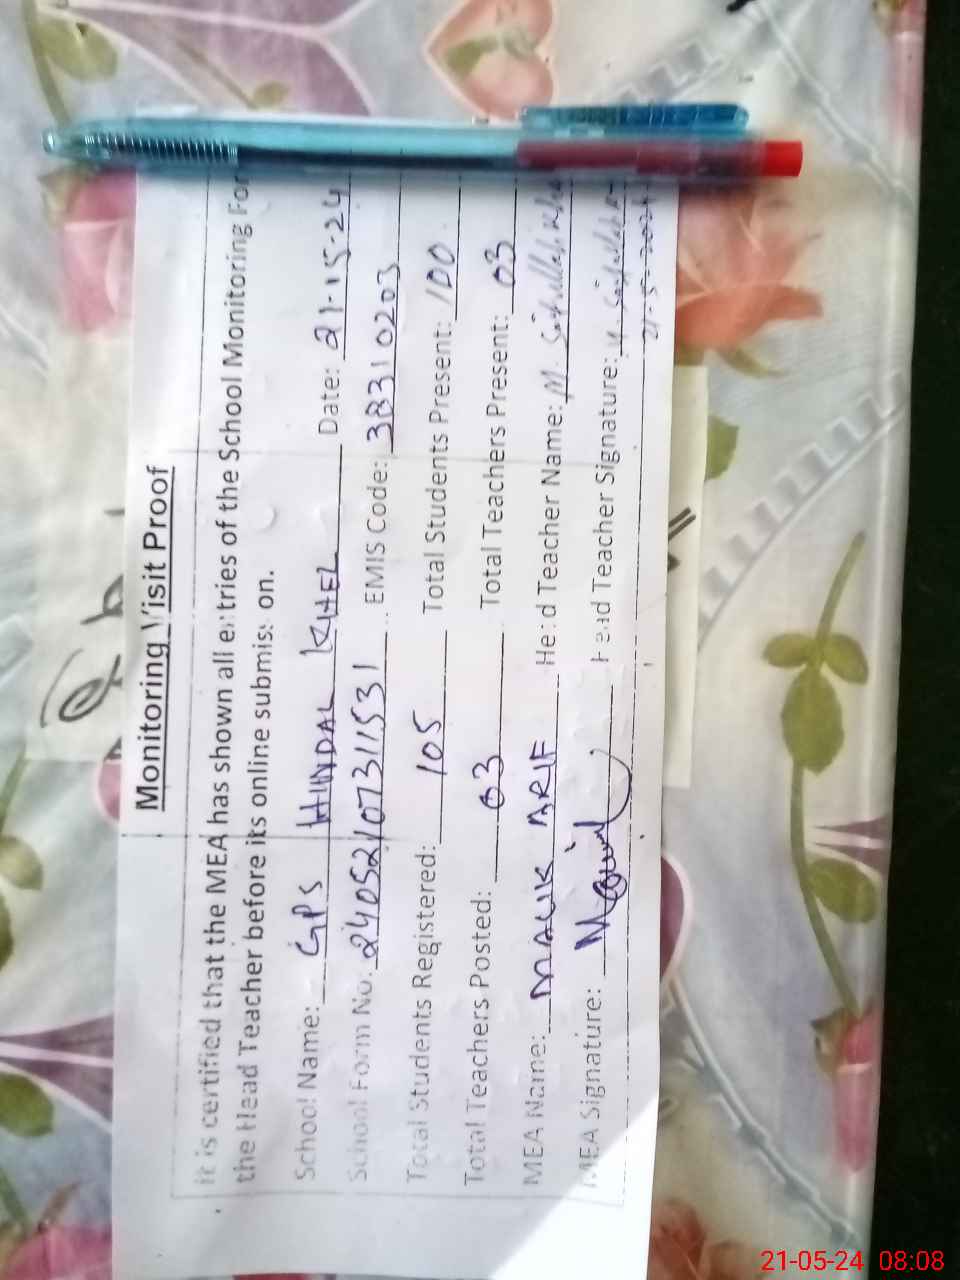 Monitoring Visit Proof
It is certified that the MEA has shown all entries of the School Monitoring For
the Head Teacher before its online submission.
School Name: GPS HINDAL KHEL Date: 21-15-24
School Form No: 24052107311531 EMIS Code: 38310203
Total Students Registered: 105 Total Students Present: 100
Total Teachers Posted: 03 Total Teachers Present: 03
MEA Name: MALIK ARIF Head Teacher Name: M.
MEA Signature: Head Teacher Signature:
21-5-2024
21-05-24 08:08